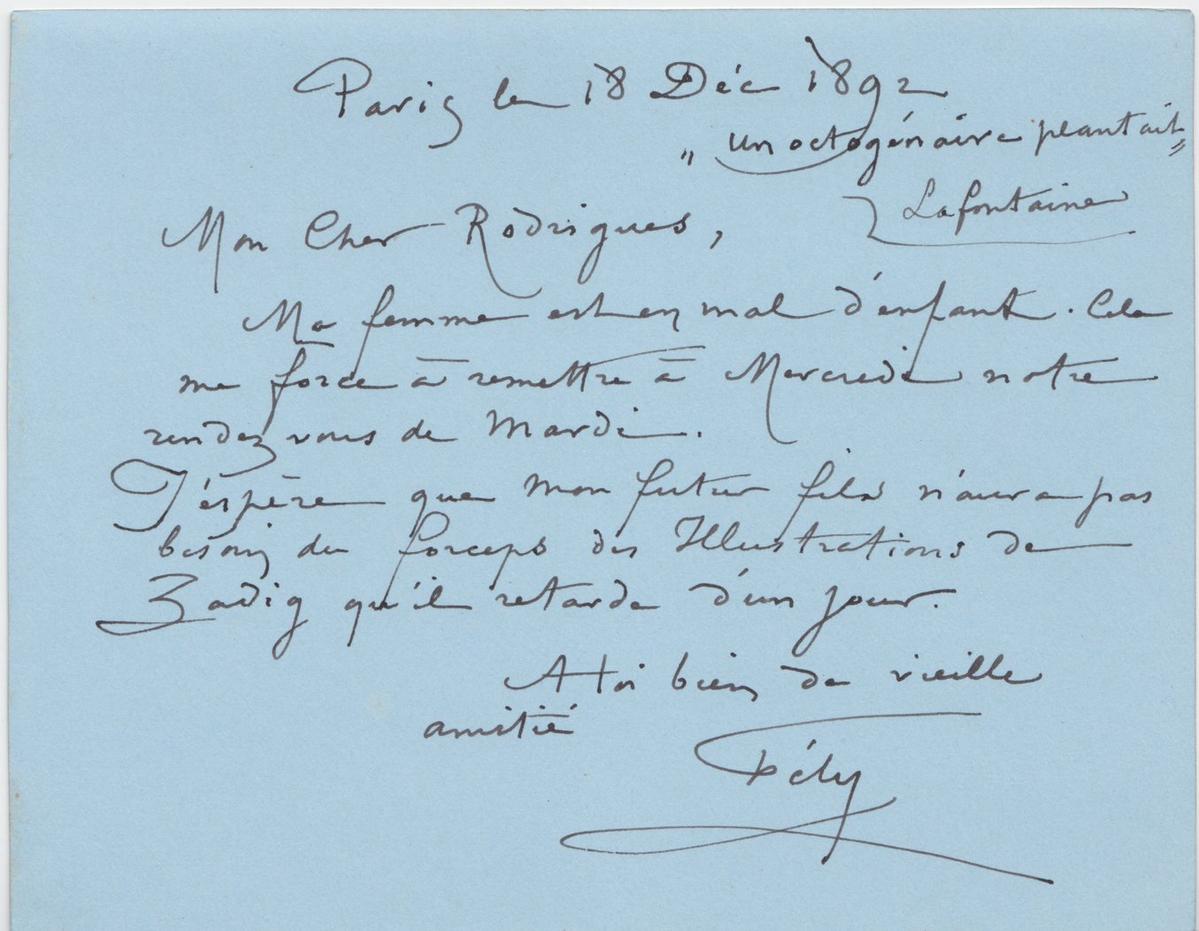 Paris le 18 Déc 1892
" un octogénaire plantait "
Lafontaine
Mon Cher Rodrigues,
Ma femme est en mal d'enfant. Cela
me force à remettre à Mercredi notre
rendez vous de Mardi.
J'éspère que mon futur fils n'aura pas
besoin du forceps des Illustrations de
Zadig qu'il retarde d'un jour.
A toi bien de vieille
amitié